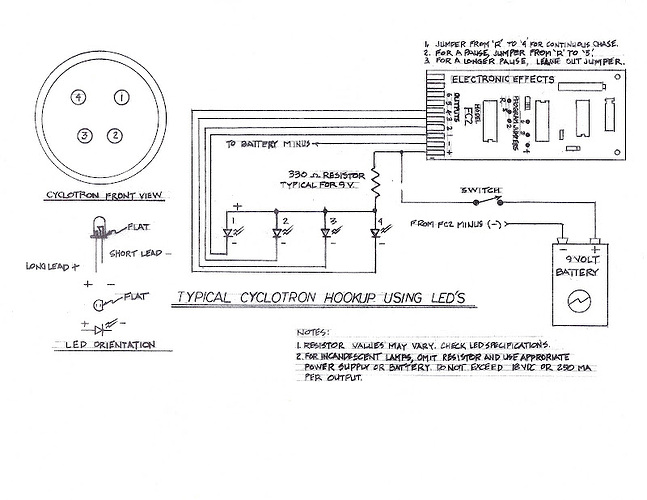 1. JUMPER FROM 'R' TO '4' FOR CONTINUOUS CHASE.
2. FOR A PAUSE, JUMPER FROM 'R' TO '5'.
3. FOR A LONGER PAUSE, LEAVE OUT JUMPER.
ELECTRONIC EFFECTS
OUTPUTS
6 5 4 3 2 1 - +
MODEL
FC2
PROGRAM JUMPERS
4 1
3 2
CYCLOTRON FRONT VIEW
TO BATTERY MINUS
330 Ω RESISTOR
TYPICAL FOR 9V.
SWITCH
FROM FC2 MINUS (-)
- +
9 VOLT
BATTERY
+
1 2 3 4
- - - -
FLAT
SHORT LEAD -
LONG LEAD +
+ -
FLAT
+ -
LED ORIENTATION
TYPICAL CYCLOTRON HOOKUP USING LED'S
NOTES:
1. RESISTOR VALUES MAY VARY. CHECK LED SPECIFICATIONS.
2. FOR INCANDESCENT LAMPS, OMIT RESISTOR AND USE APPROPRIATE
POWER SUPPLY OR BATTERY. DO NOT EXCEED 18 VDC OR 250 MA
PER OUTPUT.